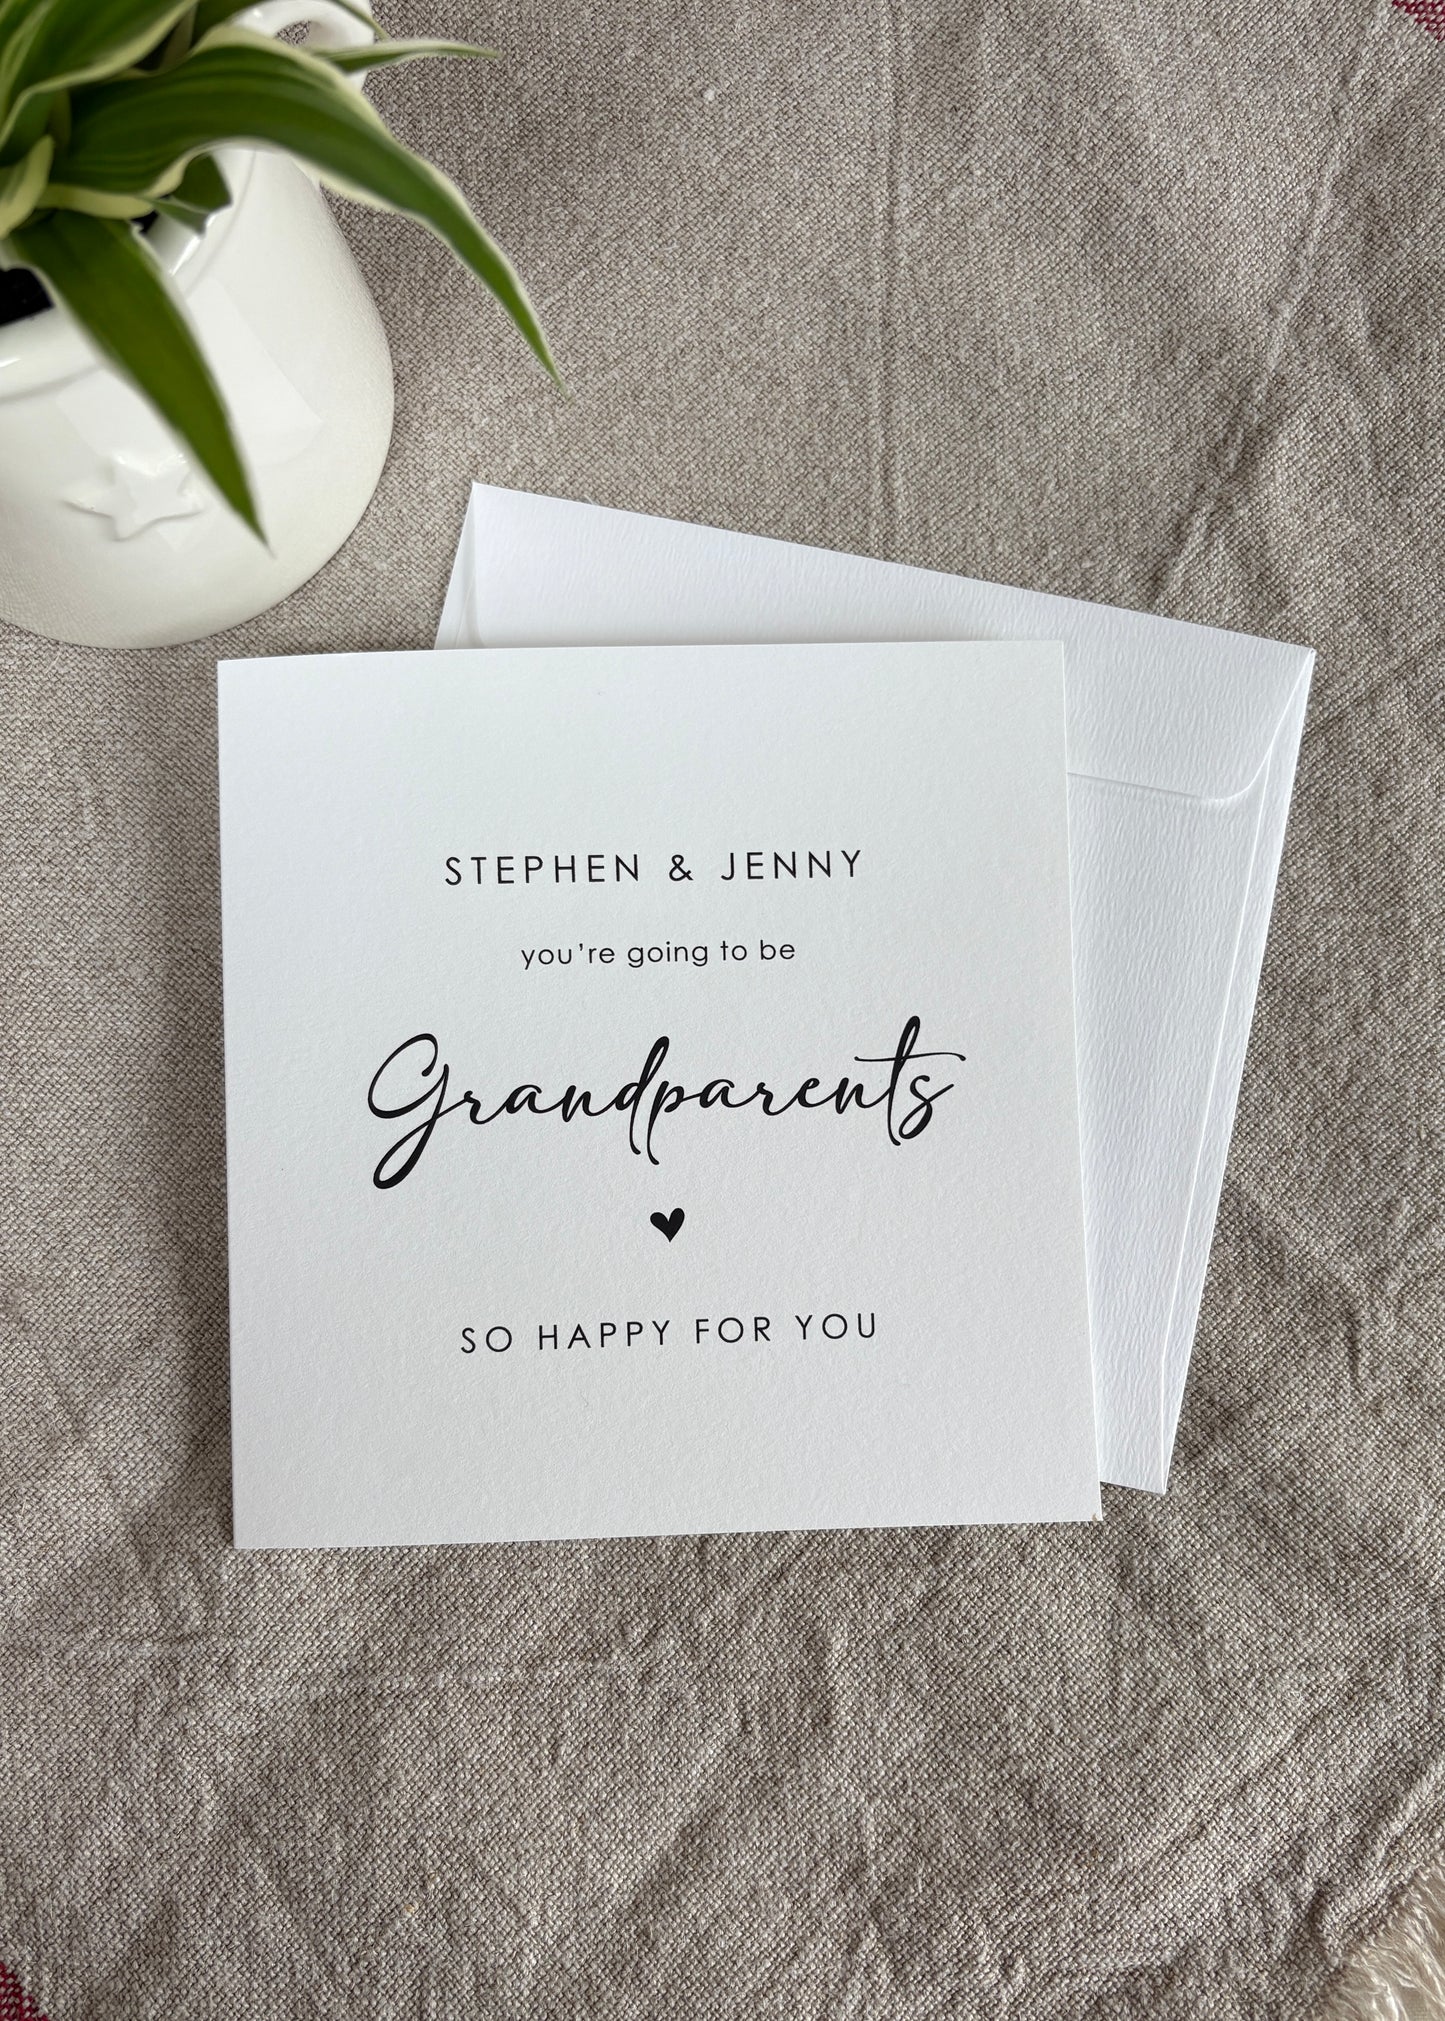 STEPHEN & JENNY
you're going to be
Grandparents
SO HAPPY FOR YOU